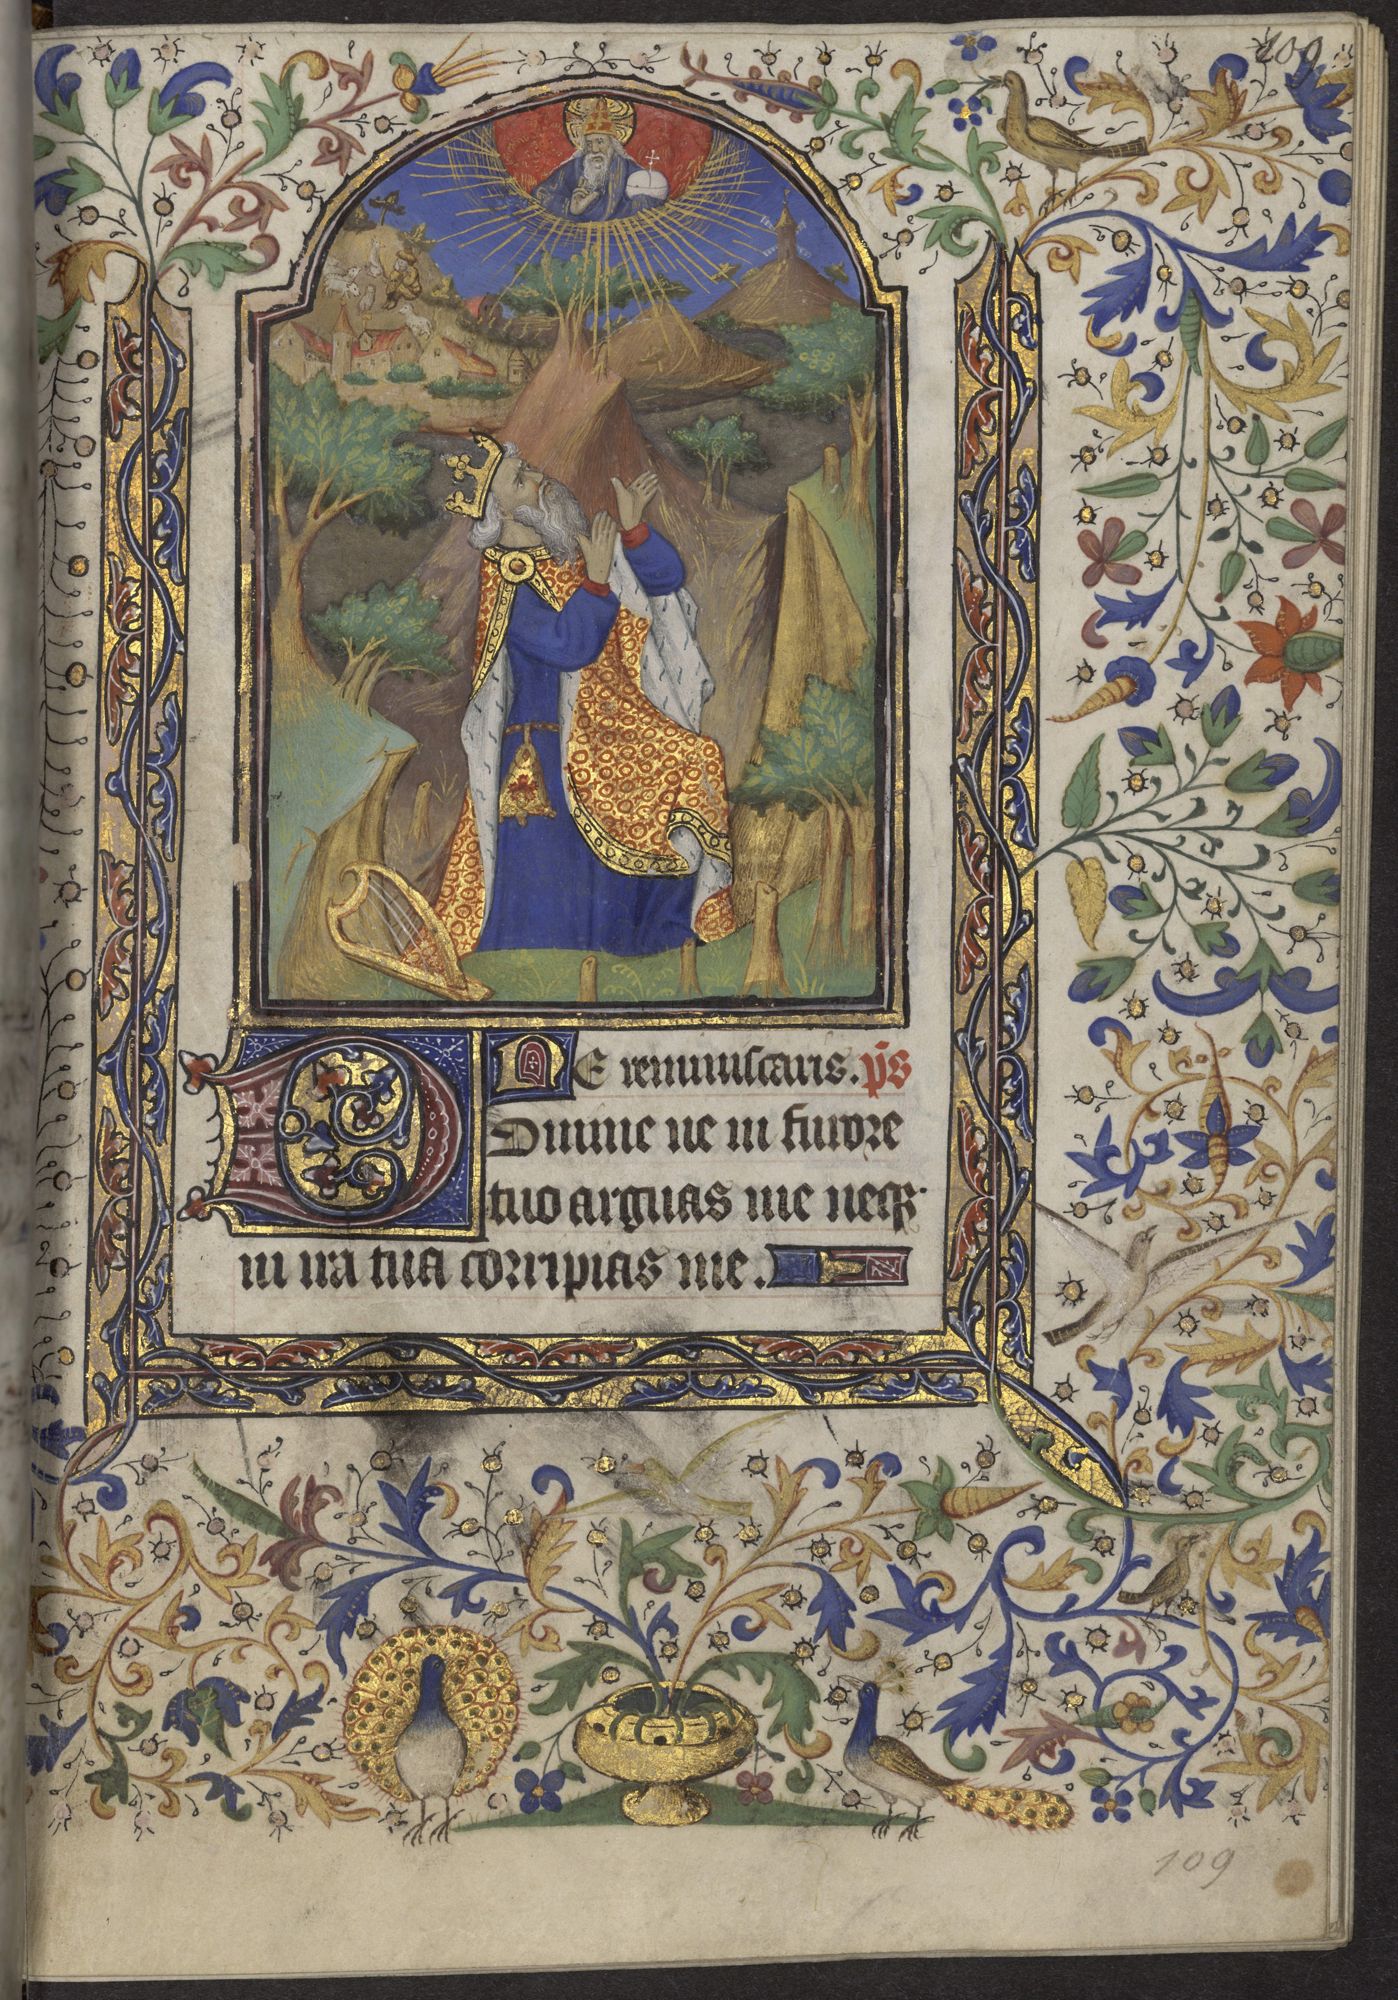 109
NE reminiscaris. p̄s
Domine ne in furore
tuo arguas me neqꝫ
in ira tua corripias me.
109